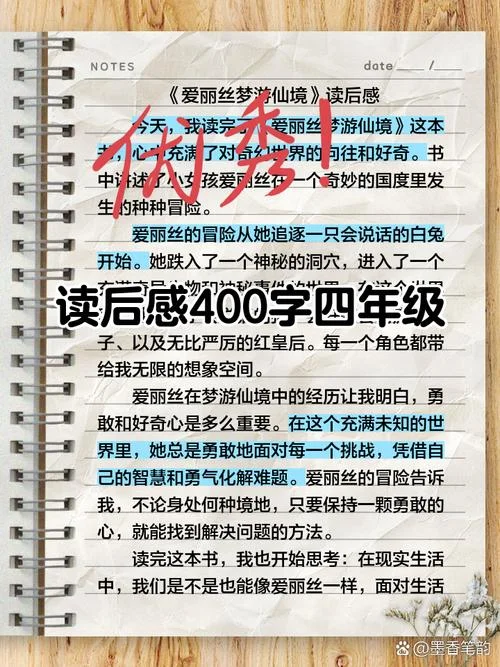 NOTES
date ___ / ___
《爱丽丝梦游仙境》读后感
今天，我读完了《爱丽丝梦游仙境》这本
书，心中充满了对奇幻世界的向往和好奇。书
中讲述了小女孩爱丽丝在一个奇妙的国度里发
生的种种冒险。
优秀！
爱丽丝的冒险从她追逐一只会说话的白兔
开始。她跌入了一个神秘的洞穴，进入了一个
读后感400字四年级
子、以及无比严厉的红皇后。每一个角色都带
给我无限的想象空间。
爱丽丝在梦游仙境中的经历让我明白，勇
敢和好奇心是多么重要。在这个充满未知的世
界里，她总是勇敢地面对每一个挑战，凭借自
己的智慧和勇气化解难题。爱丽丝的冒险告诉
我，不论身处何种境地，只要保持一颗勇敢的
心，就能找到解决问题的方法。
读完这本书，我也开始思考：在现实生活
中，我们是不是也能像爱丽丝一样，面对生活
@墨香笔韵